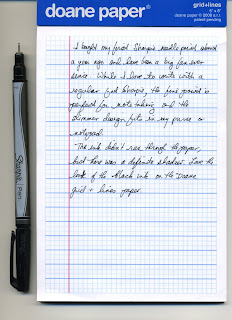 doane paper®
grid+lines
6" x 8"
doane paper © 2008 u.s.
patent pending
I bought my first Sharpie needle point about
a year ago and have been a big fan ever
since. While I love to write with a
regular Sharpie, the fine point is
perfect for note taking and the
slimmer design fits in my purse or
notepad.
The ink didn't run through the paper,
but there was a definite shadow. Love the
look of the black ink on the Doane
grid + lines paper.
Sharpie
Pen